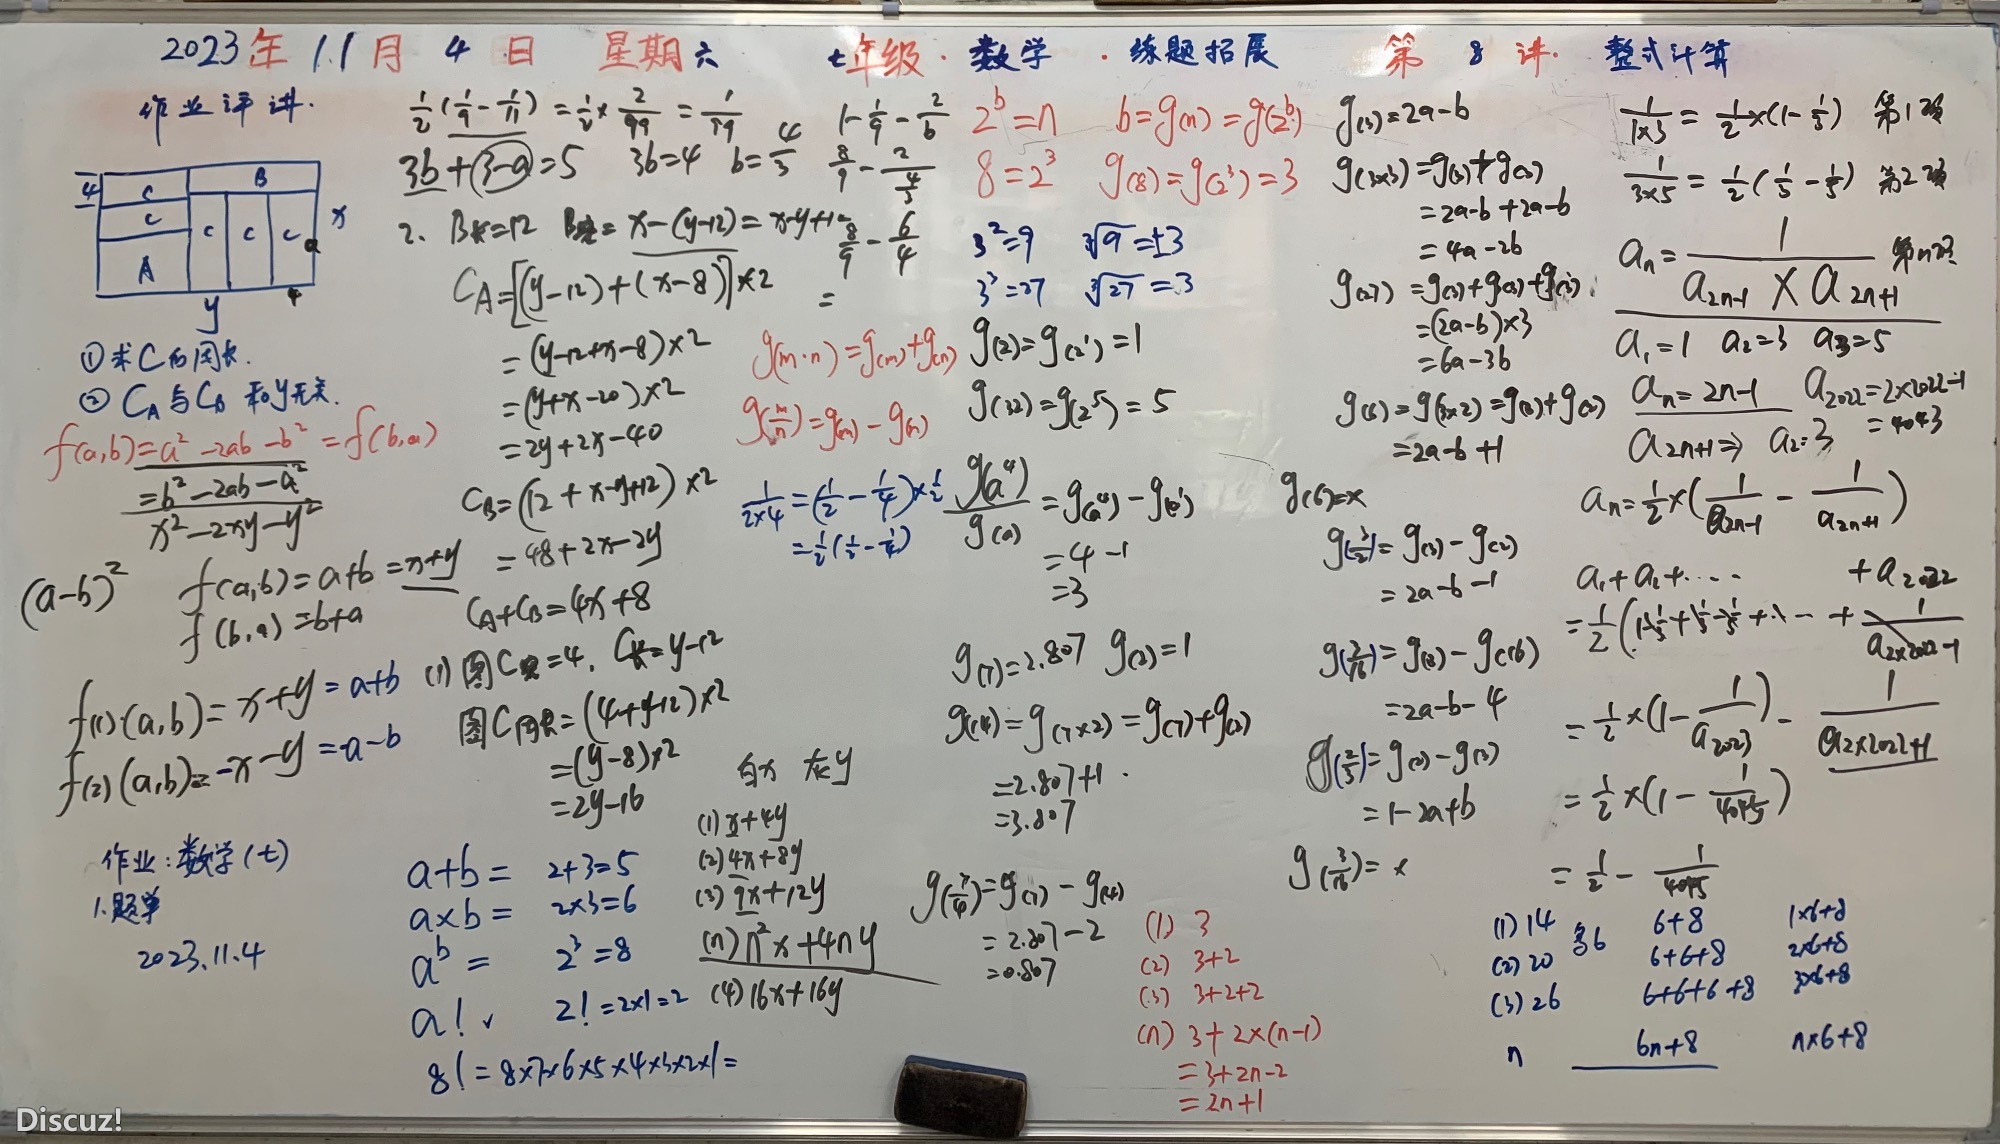 2023年11月4日 星期六 七年级·数学·练题拓展 第8讲·整式计算
作业评讲.
4
C
B
C
C
C
C
A
x
a
y
4
①求C的周长.
②CA与CB和y无关.
f(a,b)=a²-2ab-b²=f(b,a)
=b²-2ab-a²
x²-2xy-y²
(a-b)²
f(a,b)=a+b=x+y
f(b,a)=b+a
f(1)(a,b)=x+y=a+b
f(2)(a,b)=-x-y=-a-b
作业:数学(七)
1.题单
2023.11.4
1/2(1/9-1/11)=1/2×2/99=1/99
3b+(3-a)=5 3b=4 b=4/3
2. B长=12 B宽=x-(y-12)=x-y+12
CA=[(y-12)+(x-8)]×2
=(y-12+x-8)×2
=(y+x-20)×2
=2y+2x-40
CB=(12+x-y+12)×2
=48+2x-2y
CA+CB=4x+8
(1)图C宽=4, C长=y-12
图C周长=(4+y-12)×2
=(y-8)×2
=2y-16
a+b= 2+3=5
a×b= 2×3=6
a^b= 2³=8
a! ✓ 2!=2×1=2
8!=8×7×6×5×4×3×2×1=
1-1/9-2/b
8/9-2/(4/3)
8/9-6/4
=
g(m·n)=g(m)+g(n)
g(m/n)=g(m)-g(n)
1/(2×4)=(1/2-1/4)×1/2
=1/2(1/2-1/4)
(1)x+4y
(2)4x+8y
(3)9x+12y
(n)n²x+4ny
(4)16x+16y
2^b=n b=g(n)=g(2^b)
8=2³ g(8)=g(2³)=3
3²=9 ²√9=±3
3³=27 ³√27=3
g(2)=g(2¹)=1
g(32)=g(2⁵)=5
g(a⁴)/g(a)=g(a⁴)-g(a¹)
=4-1
=3
g(7)=2.807 g(2)=1
g(14)=g(7×2)=g(7)+g(2)
=2.807+1.
=3.807
g(7/4)=g(7)-g(4)
=2.807-2
=0.807
(1) 3
(2) 3+2
(3) 3+2+2
(n) 3+2×(n-1)
=3+2n-2
=2n+1
g(3)=2a-b
g(3×3)=g(3)+g(3)
=2a-b+2a-b
=4a-2b
g(27)=g(3)+g(3)+g(3).
=(2a-b)×3
=6a-3b
g(6)=g(3×2)=g(3)+g(2)
=2a-b+1
g(6)=x
g(3/2)=g(3)-g(2)
=2a-b-1
g(3/16)=g(3)-g(16)
=2a-b-4
g(2/3)=g(2)-g(3)
=1-2a+b
g(3/16)=x
1/(1×3)=1/2×(1-1/3) 第1项
1/(3×5)=1/2(1/3-1/5) 第2项
an=1/(a2n-1×a2n+1) 第n项
a1=1 a2=3 a3=5
an=2n-1 a2022=2×2022-1
=4043
a2n+1⇒ a2=3
an=1/2×(1/a2n-1-1/a2n+1)
a1+a2+.... +a2022
=1/2(1-1/3+1/3-1/5+...+1/a2×2022-1
=1/2×(1-1/a2023)-1/a2×2022+1
=1/2×(1-1/4045)
=1/2-1/4045
(1)14 多6 6+8 1×6+8
(2)20 6+6+8 2×6+8
(3)26 6+6+6+8 3×6+8
n 6n+8 n×6+8
Discuz!